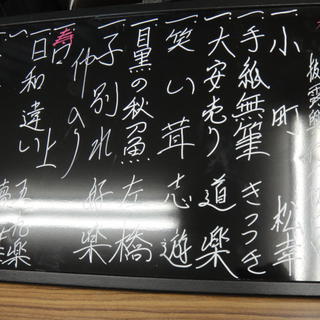 一、小町 松幸
一、手紙無筆 きつつき
一、大安売り 道楽
一、笑い茸 志遊
一、目黒の秋刀魚 左橋
一、子別れ 好楽
仲入り
寿 口上
一、日和違い